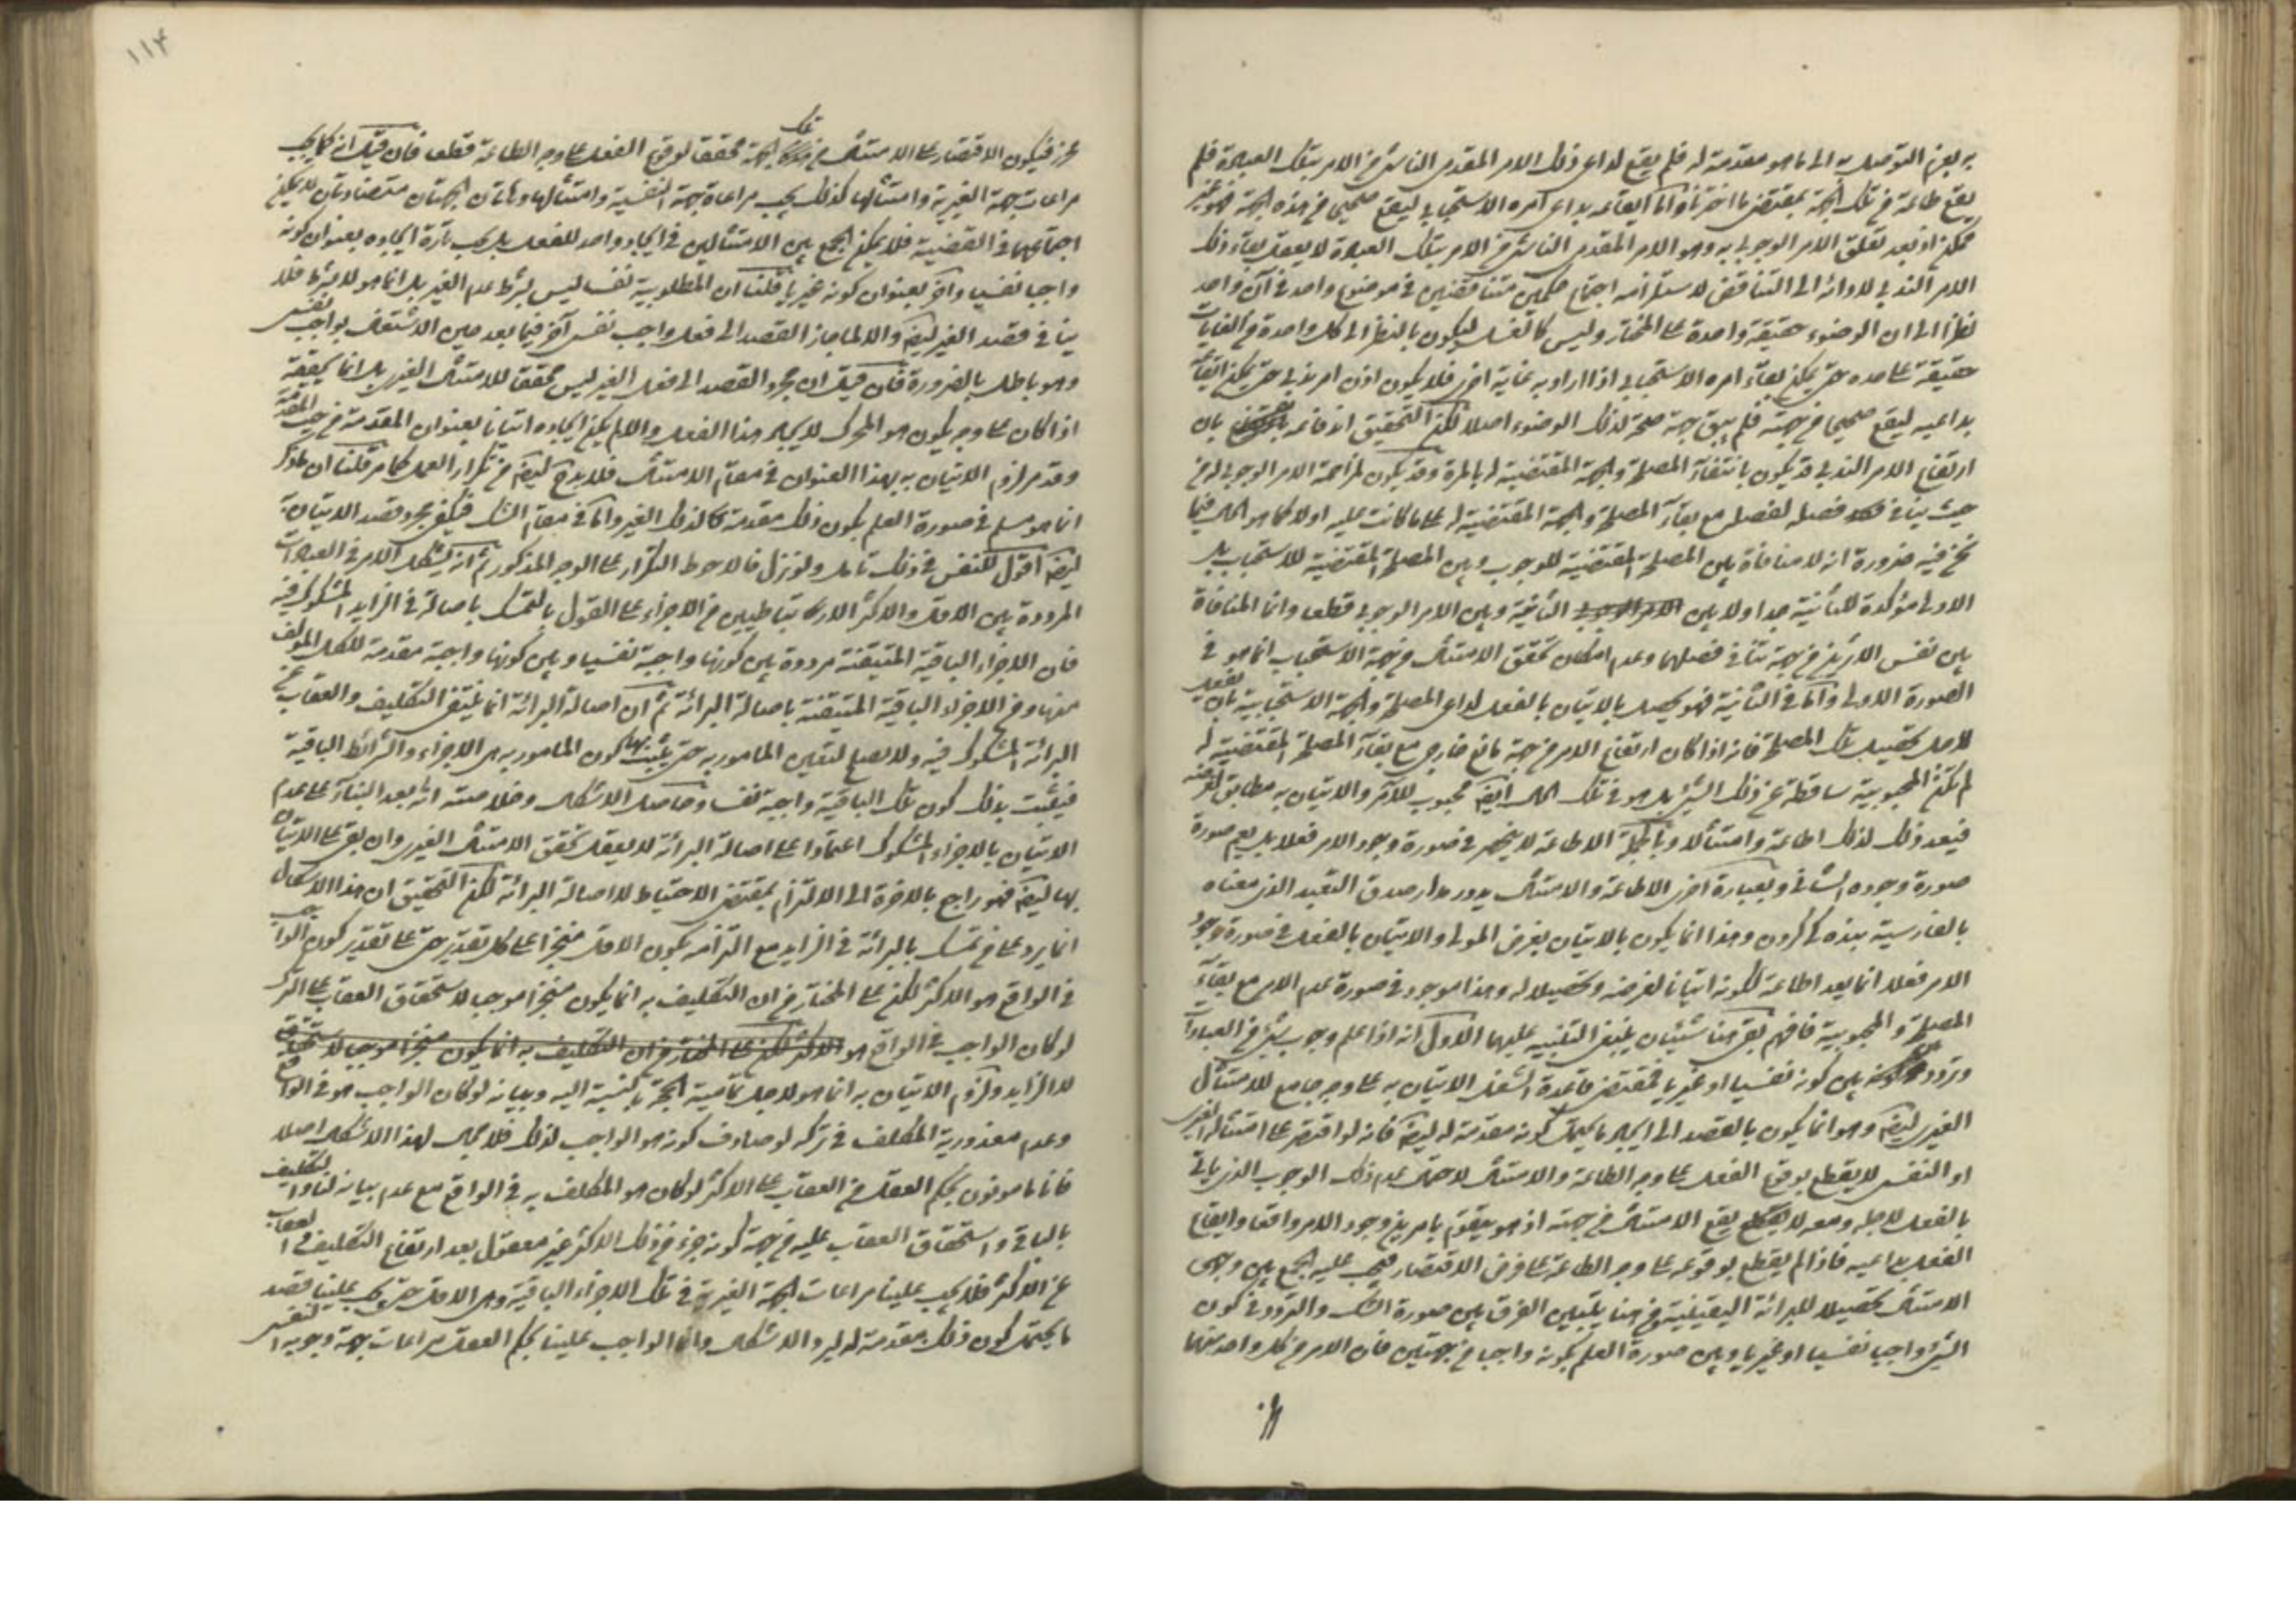 به بعزم التوصل به الى ما هو مقدمة له فلم يقع لداعى ذلك الامر المقدمى الناشئ من الامر بتلك العبادة فلم
يقع طاعة من تلك الجهة بمقتضى ما اخترنا واما ايقاعه بداعى امره الاستحبابى ليقع صحيحا من هذه الجهة فهو غير
ممكن اذ بعد تعلق الامر الوجوبى به وهو الامر المقدمى الناشئ من الامر بتلك العبادة لا يعقل بقاء ذلك
الامر الندبى لادائه الى التناقض لاستلزامه اجتماع حكمين متناقضين فى موضوع واحد فى آن واحد
نظرا الى ان الوضوء حقيقة واحدة على المختار وليس كالغسل ليكون بالنظر الى كل واحدة من الغايات
حقيقة على حده حتى يمكن بقاء امره الاستحبابى اذا اراد به غاية اخرى فلا يكون اذن امر ندبى حتى يمكن ايقاعه
بداعيه ليقع صحيحا من جهته فلم يبق جهة صحة لذلك الوضوء اصلا لكن التحقيق اندفاعه بان
ارتفاع الامر الندبى قد يكون بانتفاء المصلحة والجهة المقتضية له بالمرة وقد يكون لمزاحمة الامر الوجوبى له من
حيث ينافى فصله لفصله مع بقاء المصلحة والجهة المقتضية له على ما كانت عليه اولا كما هو الحال فيما
نحن فيه ضرورة انه لا منافاة بين المصلحة المقتضية للوجوب وبين المصلحة المقتضية للاستحباب بل
الاولى مؤكدة للثانية جدا ولا بين الثانية وبين الامر الوجوبى قطعا وانما المنافاة
بين نفس الامرين من جهة تنافى فصليهما وعدم امكان تحقق الامتثال من جهة الاستحباب انما هو فى
الصورة الاولى واما فى الثانية فهو يحصل بالاتيان بالفعل لداعى المصلحة والجهة الاستحبابية بان يفعل
لاجل تحصيل تلك المصلحة فانه اذا كان ارتفاع الامر من جهة مانع خارجى مع بقاء المصلحة المقتضية له
لم تكن المحبوبية ساقطة عن ذلك الشئ بل هو فى تلك الحال ايضا محبوب للآمر والاتيان به مطابق لغرضه
فيعد ذلك لذلك اطاعة وامتثالا وبالجملة الاطاعة لا ينحصر فى صورة وجود الامر فعلا بل يعم صورة
صورة وجوده الشأنى وبعبارة اخرى الاطاعة والامتثال يدور مدار صدق التعبد الذى معناه
بالفارسية بنده كى كردن وهذا انما يكون بالاتيان بغرض المولى والاتيان بالفعل فى صورة وجود
الامر فعلا انما يعد اطاعة لكونه اتيانا لغرضه وتحصيلا له وهذا موجود فى صورة عدم الامر مع بقاء
المصلحة والمحبوبية فافهم بقى هنا شيئان ينبغى التنبيه عليهما الاول انه اذا علم وجوب شئ من العبادات
وتردد بين كونه نفسيا او غيريا فمقتضى قاعدة الشغل الاتيان به على وجه جامع للامتثال
الغيرى ايضا وهو انما يكون بالقصد الى ايجاد ما يحتمل كونه مقدمة له ايضا فانه لو اقتصر على امتثاله الغيرى
او النفسى لا يقطع بوقوع الفعل على وجه الطاعة والامتثال لاحتمال عدم ذلك الوجوب الذى ياتى
بالفعل لاجله ومعه لا يقع الامتثال من جهته اذ هو يتقوم بامرين وجود الامر واقعا وايقاع
الفعل بداعيه فاذا لم يقطع بوقوعه على وجه الطاعة على فرض الاقتصار فيجب عليه الجمع بين وجهى
الامتثال تحصيلا للبرائة اليقينية ومن هنا يتبين الفرق بين صورة الشك والتردد فى كون
الشئ واجبا نفسيا او غيريا وبين صورة العلم بكونه واجبا من جهتين فان الامر من كل واحد منهما
١١٤
محرز فيكون الاقتصار على الامتثال من تلك الجهة محققا لوقوع الفعل على وجه الطاعة قطعا فان قيل انه كما يجب
مراعات جهة الغيرية وامتثالها كذلك يجب مراعاة جهة النفسية وامتثالها وهاتان الجهتان متضادتان لا يمكن
اجتماعهما فى القضية فلا يمكن الجمع بين الامتثالين فى ايجاد واحد للفعل بل يجب تارة ايجاده بعنوان كونه
واجبا نفسيا واخرى بعنوان كونه غيريا قلنا ان المطلوبية نفسا ليس بشرط عدم الغير بل انما هو لا بشرط فلا
ينافى قصد الغير ايضا والا لما جاز القصد الى فعل واجب نفسى آخر فيما بعد حين الاشتغال بواجب نفسى
وهو باطل بالضرورة فان قيل ان مجرد القصد الى فعل الغير ليس محققا للامتثال الغيرى بل انما يحققه
اذا كان على وجه يكون هو المحرك لايجاد هذا الفعل والا لم يكن ايجاده اتيانا بعنوان المقدمة من حيث المقدمية
وقد مر لزوم الاتيان به بهذا العنوان فى مقام الامتثال فلا بد ايضا من تكرار العمل كما مر قلنا ان ما ذكر
انما هو مسلم فى صورة العلم بكون ذلك مقدمة كالذلك الغير واما فى مقام الشك فيكفى مجرد قصد الاتيان به
ايضا اقول للنفس فى ذلك تامل ولو نزل فالاحوط التكرار على الوجه المذكور ثم انه يشكل الامر فى العبادات
المرددة بين الاقل والاكثر الارتباطيين من الاجزاء على القول بالتمسك باصالة فى الزايد المشكوك فيه
فان الاجزاء الباقية المتيقنة مرددة بين كونها واجبة نفسيا وبين كونها واجبة مقدمة للكل المؤلف
منها ومن الاجزاء الباقية المتيقنة باصالة البرائة ثم ان اصالة البرائة انما ينتفى التكليف والعقاب عن
البرائة المشكوك فيه ولا يصلح لتعيين المامور به حتى يثبت بها كون المامور به هى الاجزاء والشرائط الباقية
فيثبت بذلك كون تلك الباقية واجبة نفسا وحاصل الاشكال وخلاصته انه بعد البناء على عدم
الاتيان بالاجزاء المشكوك اعتمادا على اصالة البرائة لا يعقل تحقق الامتثال الغيرى وان بقى على الاتيان
بها ايضا فهو راجع بالاخرة الى الالتزام بمقتضى الاحتياط لا اصالة البرائة لكن التحقيق ان هذا الاشكال
انما يرد على من تمسك بالبرائة فى الزايد مع التزامه بكون الاقل منجزا على كل تقدير حتى على تقدير كون الواجب
فى الواقع هو الاكثر لكن على المختار من ان التكليف به انما يكون منجزا موجبا لاستحقاق العقاب على الترك
لو كان الواجب فى الواقع هو الاكثر لكن على المختار من ان التكليف به انما يكون منجزا موجبا لاستحقاق
لا الزايد ولزوم الاتيان به انما هو لاجل تمامية الحجة بالنسبة اليه وبيانه لو كان الواجب هو فى الواقع
وعدم معذورية المكلف فى تركه لو صادف كونه هو الواجب لذلك فلا مجال لهذا الاشكال اصلا
فانا مامونون بحكم العقل من العقاب على الاكثر لو كان هو المكلف به فى الواقع مع عدم بيانه لنا والتكليف
بالباقى واستحقاق العقاب عليه من جهة كونه جزء من ذلك الاكثر غير معقول بعد ارتفاع التكليف والعقاب
عن الاكثر فلا يجب علينا مراعات الجهة الغيرية فى تلك الاجزاء الباقية وهى الاقل حتى يجب علينا قصد
ما يحتمل كون ذلك مقدمة له ليرد الاشكال وانما الواجب علينا بحكم العقل مراعات جهة وجوبه النفسى